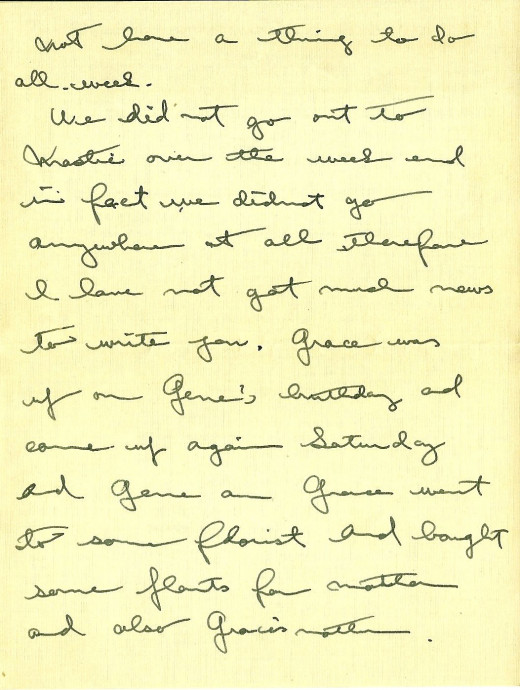 not have a thing to do
all week.
We did not go out to
over the week end
in fact we did not go
anywhere at all therefore
I have not got much news
to write you. Grace was
up on Gene's birthday ad
come up again Saturday
and Gene an Grace went
to some florist and bought
some plants for mother
and also Grace's mother.